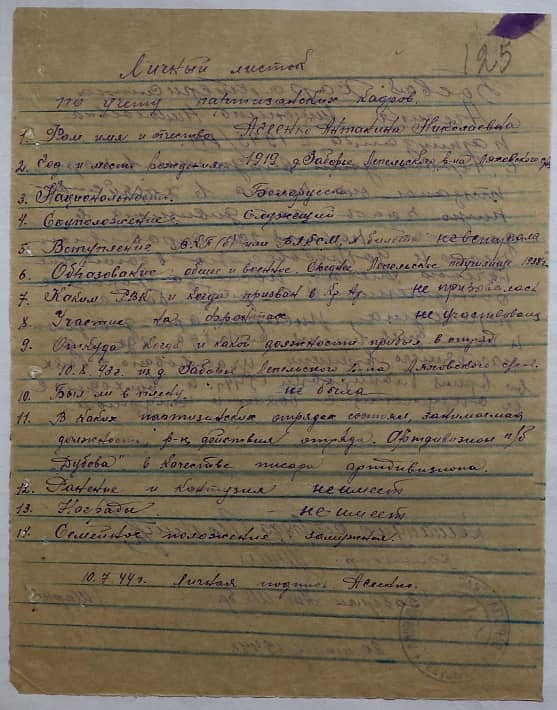 125
Личный листок
по учету партизанских кадров.
1. Фам. имя и отчество Асеенко Николаевна
2. Год и место рождения 1919 д. Заборье Лепельского р-на Ляховского с/с
3. Национальность. Белорусска
4. Соцположение Служащий
5. Вступление ВКП(б) или ВЛКСМ, № билета не вступала
6. Образование: общее и военное Среднее Лепельское педучилище 1938 г.
7. Каким РВК и когда призван в Кр. Ар. не призывалась
8. Участие на фронтах не участвовала
9. Откуда когда и какой должности прибыл в отряд
10.X.43г. из д. Заборья Лепельского р-на Ляховского
10. Был ли в плену. не была
11. В каких партизанских отрядах состоял, занимаемая
должность, р-н действия отряда. Артдивизион п/б
"Дубова" в качестве писаря артдивизиона.
12. Ранение и контузия не имеет
13. Награды. - не имеет
14. Семейное положение замужняя.
10.7.44г. Личная подпись Асеенко.